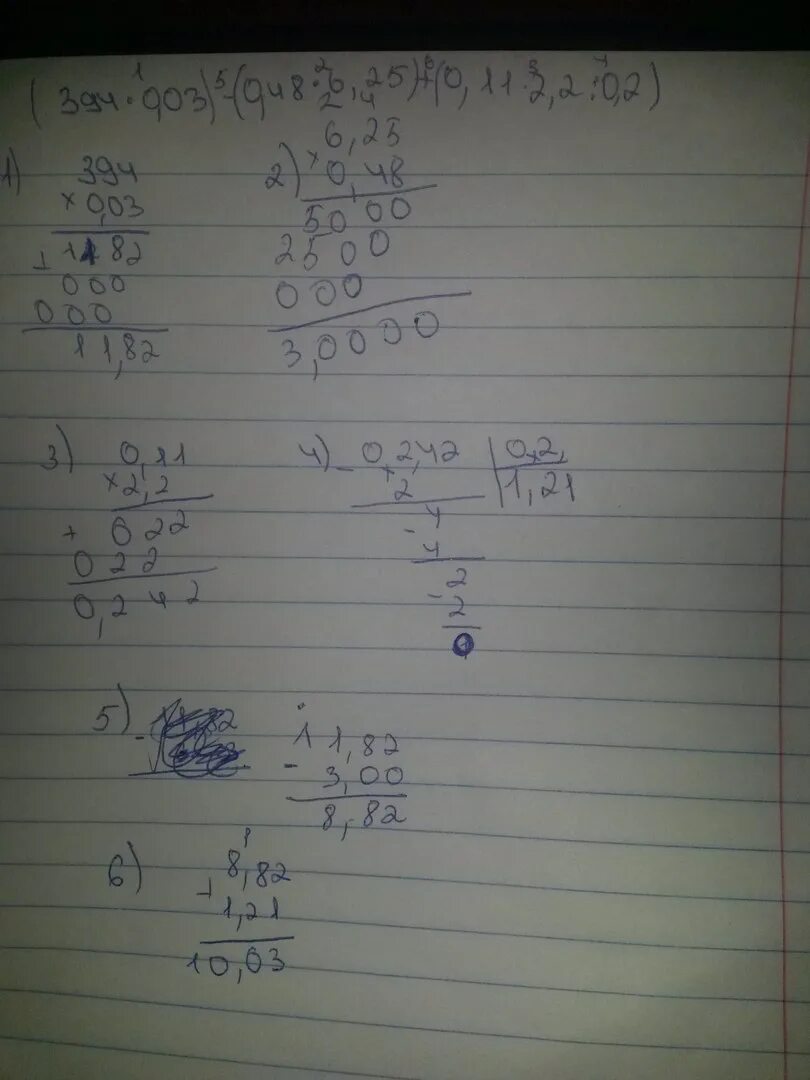 (394·0,03)-(0,48·6,25)+(0,11·2,2:0,2)
1 5 2 6 3 4
2 4
1) 394
× 0,03
1182
+ 000
000
11,82
2) 6,25
× 0,48
5000
2500
000
3,0000
3) 0,11
× 2,2
+ 022
022
0,242
4) - 0,2,42 | 0,2,
2 | 1,21
- 4
4
- 2
2
0
5) - 11,82
3,00
8,82
6) 1
8,82
+ 1,21
10,03